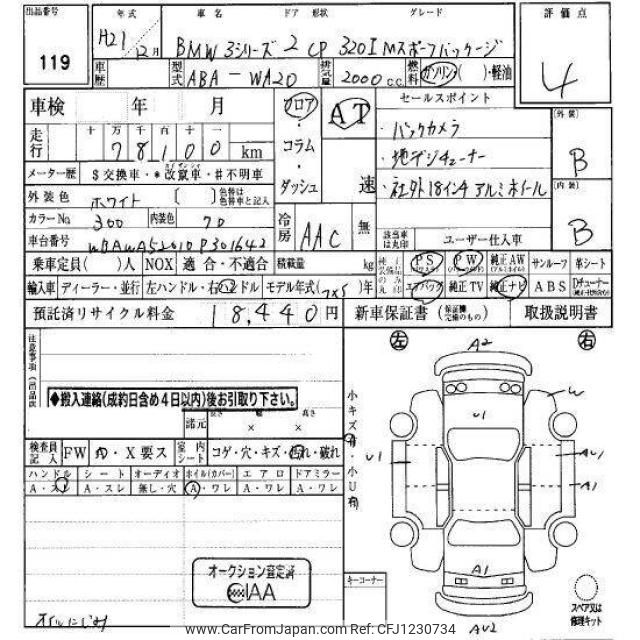 出品番号
119
年式 車名 ドア 形状 グレード
H21 12月 BMW 3シリーズ 2 CP 320I Mスポーツパッケージ
評価点
4
車歴 型式 ABA-WA20 排気量 2000 cc 燃料 ガソリン・( )・軽油
車検 年 月
フロア・コラム・ダッシュ
AT
速
セールスポイント
・バックカメラ
・地デジチューナー
・社外18インチアルミホイール
外装
B
内装
B
走行 十 万 千 百 十 一
78100 km
メーター歴 $交換車・*改竄車・#不明車
外装色 ホワイト ( ) 色替は色替車と記入
カラーNo 300 内装色 70
冷房 AAC 無
該当車は丸印
ユーザー仕入車
車台番号
乗車定員( )人 NOX 適合・不適合 積載量 kg
PS PW 純正AW サンルーフ 革シート
輸入車 ディーラー・並行 左ハンドル・右ハンドル モデル年式( )年
エアバッグ 純正TV 純正ナビ ABS Dチューナー
預託済リサイクル料金 18,440円
新車保証書 取扱説明書
◆搬入連絡(成約日含め4日以内)後お引取り下さい。
諸元 長さ 幅 高さ
× ×
検査員記入 FW 内・X要ス 室内シート コゲ・穴・キズ・汚れ・破れ
ハンドル シート オーディオ ホイル(カバー) エアロ ドアミラー
A・スレ A・スレ 無し・穴 A・ワレ A・ワレ A・ワレ
オークション査定済
IAA
オイルにじみ
小キズ有・小U有
左 右
A2
U1
W
U1
AU1
A1
A1
AU2
キーコーナー
スペア又は修理キット
www.CarFromJapan.com Ref:CFJ1230734